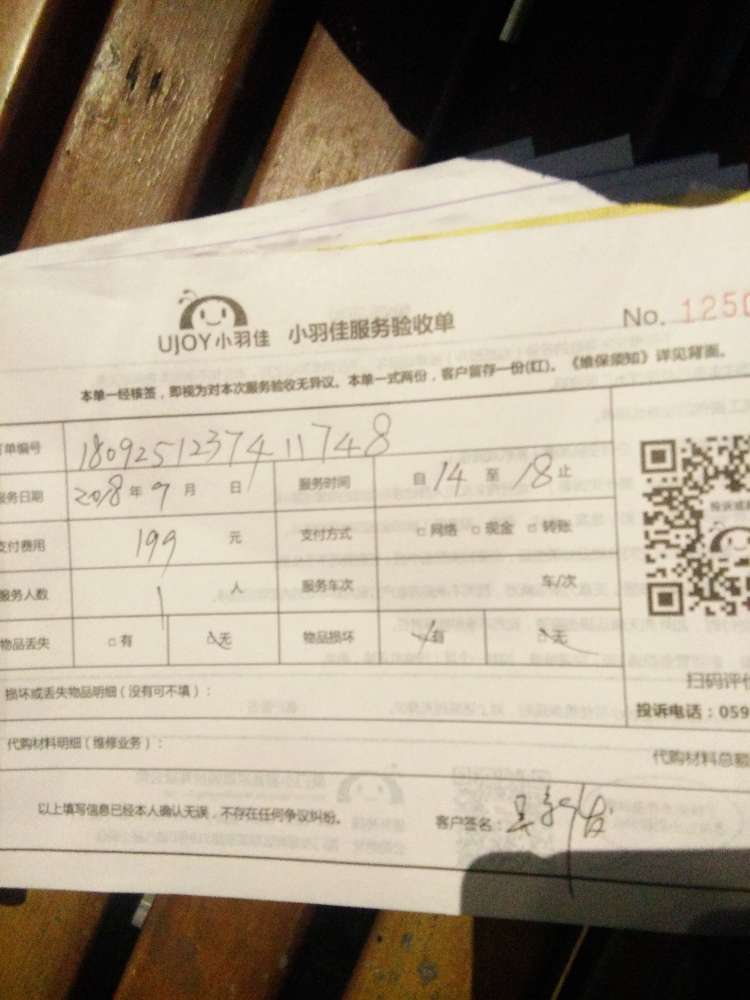 UJOY小羽佳 小羽佳服务验收单 No. 1250
本单一经核签，即视为对本次服务验收无异议。本单一式两份，客户留存一份(红)。《维保须知》详见背面。
单编号 180925123741748
服务日期 2018年9月 日 服务时间 自14至18止
支付费用 199 元 支付方式 □网络 □现金 □转账
服务人数 1 人 服务车次 车/次
物品丢失 □有 □无 物品损坏 □有 □无
损坏或丢失物品明细（没有可不填）：
扫码评价
投诉电话：059
代购材料明细（维修业务）：
代购材料总额
以上填写信息已经本人确认无误，不存在任何争议纠纷。
客户签名：